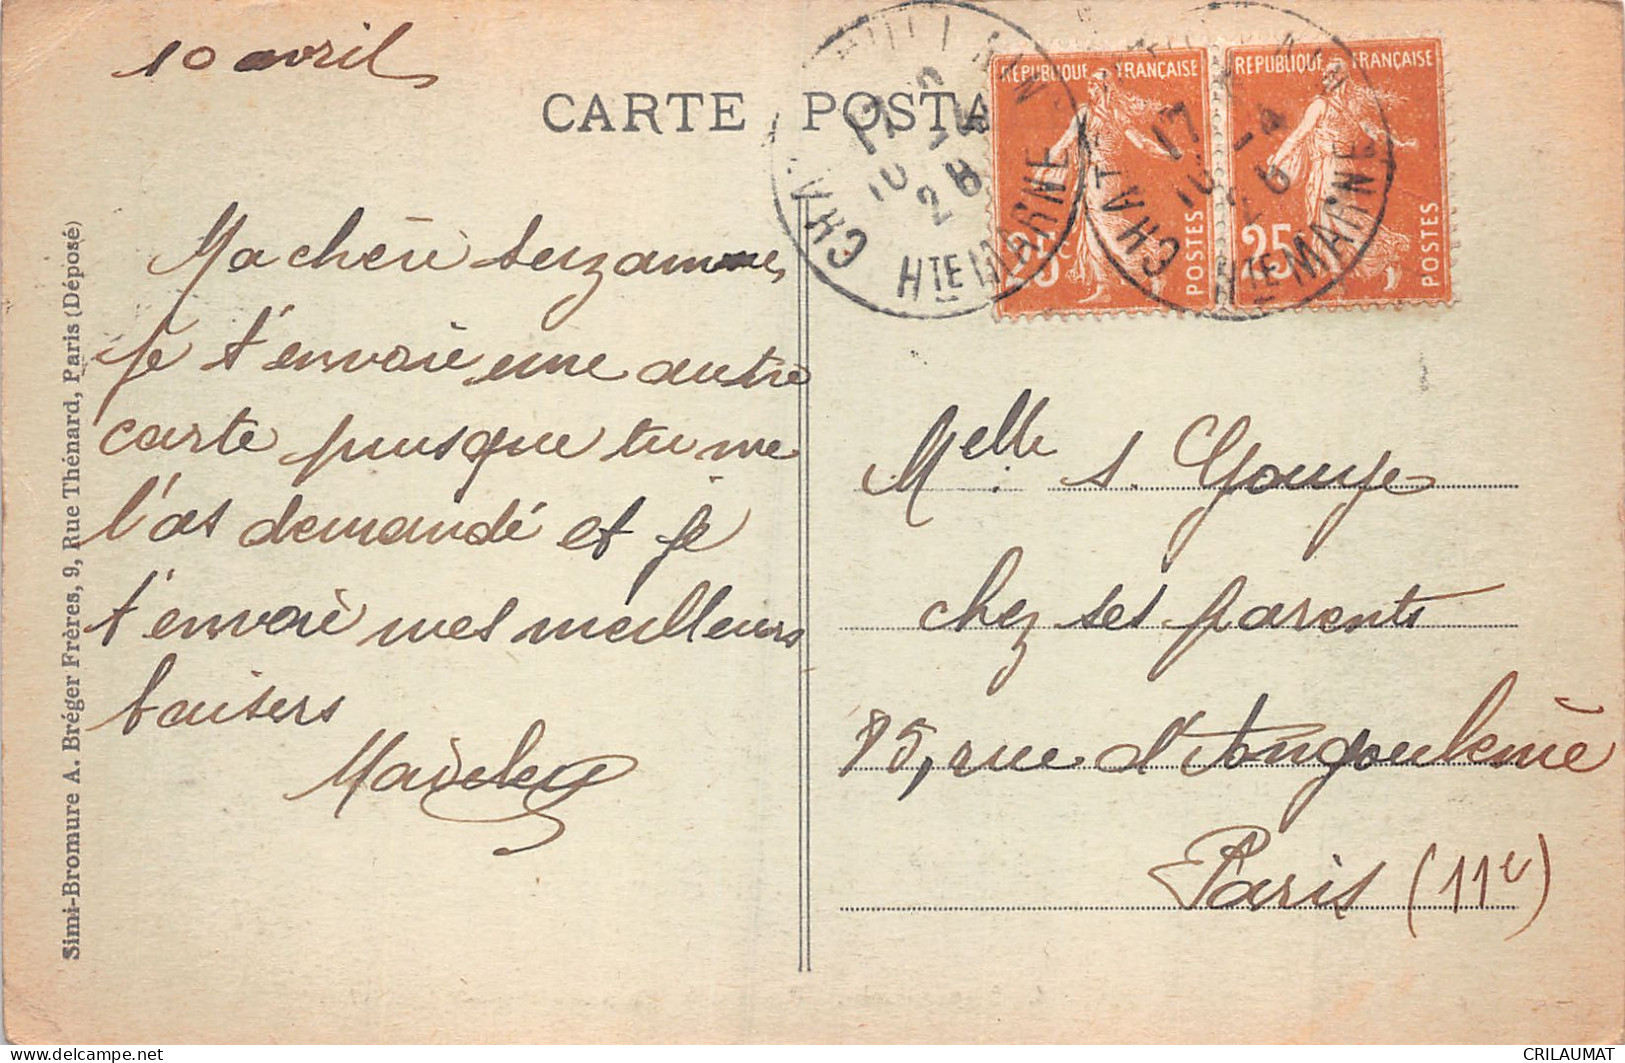 10 avril
CARTE POSTA
Ma chère Suzanne,
Je t'envoie une autre
carte puisque tu me
l'as demandé et je
t'envoie mes meilleurs
baisers
Simi-Bromure A. Bréger Frères, 9, Rue Thénard, Paris (Déposé)
RÉPUBLIQUE FRANÇAISE
25c
POSTES
RÉPUBLIQUE FRANÇAISE
25
POSTES
17
10 -4
28
HTE MARNE
CHAT
17
10 -4
28
HTE MARNE
Melle S. Gouye
chez ses parents
95, rue d'Angoulème
Paris (11e)
CRILAUMAT